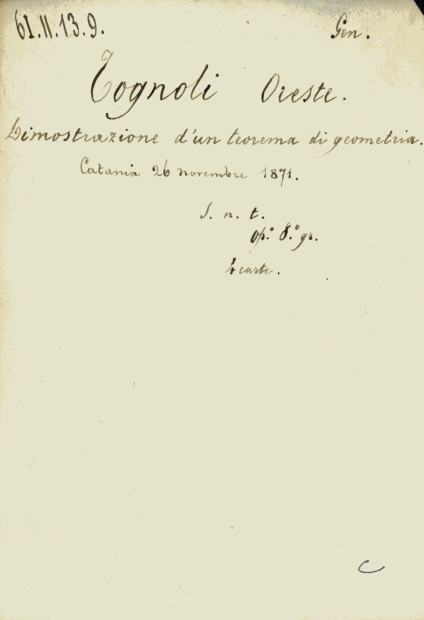 61.II.13.9. Gen.
Tognoli Oreste.
Dimostrazione d'un teorema di geometria.
Catania 26 novembre 1871.
S. n. t.
op.° 8.° gr.
4 carte.
C